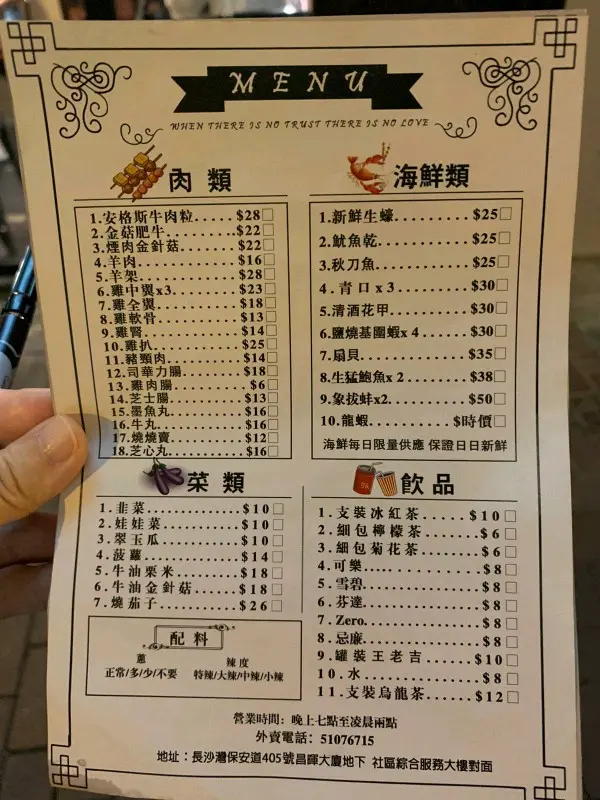 MENU
WHEN THERE IS NO TRUST THERE IS NO LOVE
肉類
1.安格斯牛肉粒.....$28□
2.金菇肥牛........$22□
3.煙肉金針菇......$22□
4.羊肉............$16□
5.羊架............$28□
6.雞中翼x3........$23□
7.雞全翼..........$18□
8.雞軟骨..........$13□
9.雞腎............$14□
10.雞扒...........$25□
11.豬頸肉.........$14□
12.司華力腸.......$18□
13.雞肉腸.........$6□
14.芝士腸.........$13□
15.墨魚丸.........$16□
16.牛丸...........$16□
17.燒燒賣.........$12□
18.芝心丸.........$16□
海鮮類
1.新鮮生蠔.........$25□
2.魷魚乾...........$25□
3.秋刀魚...........$25□
4.青口x3..........$30□
5.清酒花甲.........$30□
6.鹽燒基圍蝦x4....$30□
7.扇貝.............$35□
8.生猛鮑魚x2......$38□
9.象拔蚌x2........$50□
10.龍蝦...........$時價□
海鮮每日限量供應 保證日日新鮮
菜類
1.韭菜............$10□
2.娃娃菜..........$10□
3.翠玉瓜..........$10□
4.菠蘿............$14□
5.牛油粟米........$18□
6.牛油金針菇......$18□
7.燒茄子..........$26□
配料
蔥 辣度
正常/多/少/不要 特辣/大辣/中辣/小辣
飲品
1.支裝冰紅茶.....$10□
2.細包檸檬茶......$6□
3.細包菊花茶......$6□
4.可樂............$8□
5.雪碧............$8□
6.芬達............$8□
7.Zero............$8□
8.忌廉............$8□
9.罐裝王老吉.....$10□
10.水.............$8□
11.支裝烏龍茶....$12□
營業時間：晚上七點至凌晨兩點
外賣電話：51076715
地址：長沙灣保安道405號昌暉大廈地下 社區綜合服務大樓對面